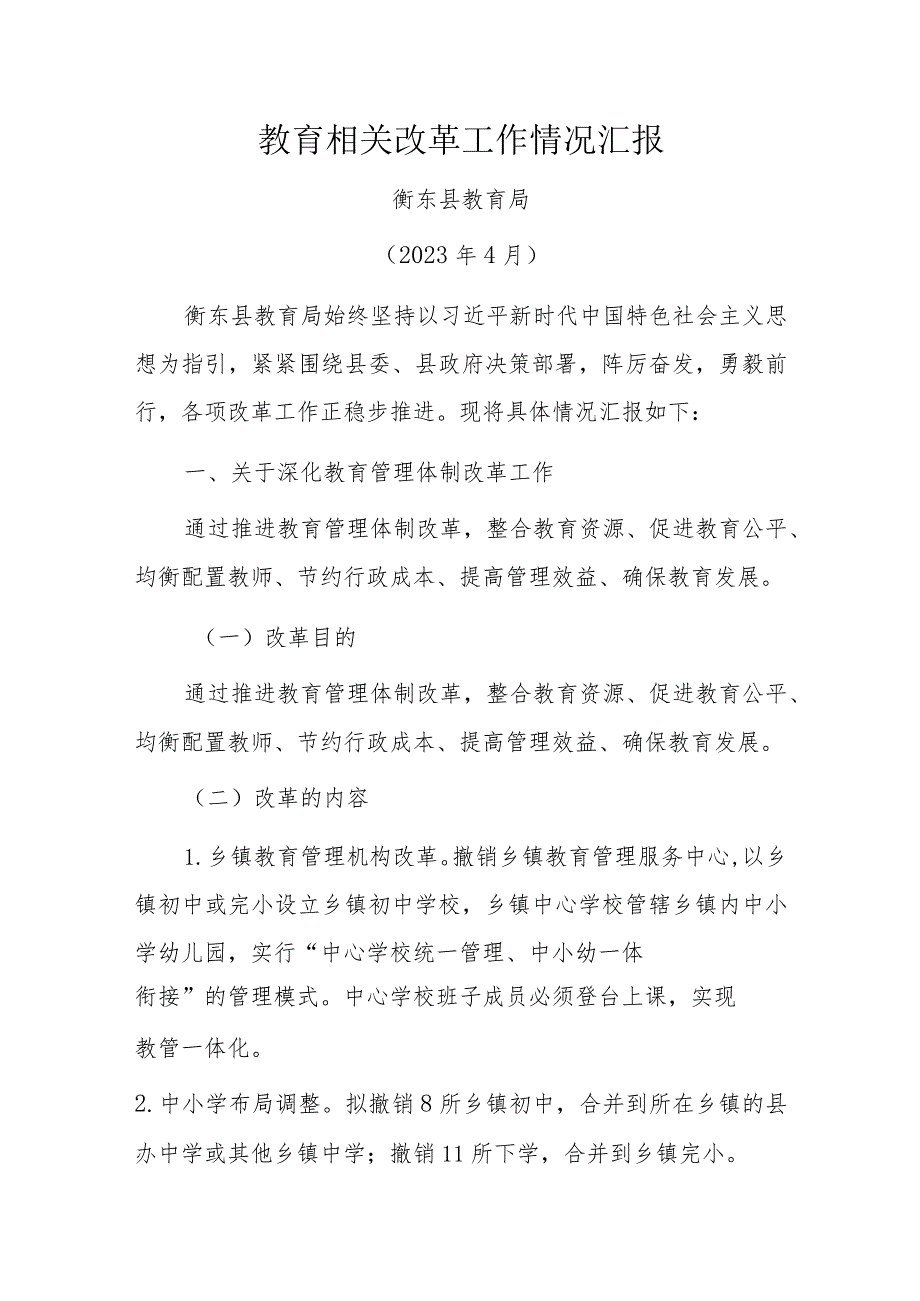 教育相关改革工作情况汇报
衡东县教育局
（2023 年 4 月）
衡东县教育局始终坚持以习近平新时代中国特色社会主义思
想为指引，紧紧围绕县委、县政府决策部署，阵厉奋发，勇毅前
行，各项改革工作正稳步推进。现将具体情况汇报如下：
一、关于深化教育管理体制改革工作
通过推进教育管理体制改革，整合教育资源、促进教育公平、
均衡配置教师、节约行政成本、提高管理效益、确保教育发展。
（一）改革目的
通过推进教育管理体制改革，整合教育资源、促进教育公平、
均衡配置教师、节约行政成本、提高管理效益、确保教育发展。
（二）改革的内容
1.乡镇教育管理机构改革。撤销乡镇教育管理服务中心,以乡
镇初中或完小设立乡镇初中学校，乡镇中心学校管辖乡镇内中小
学幼儿园，实行“中心学校统一管理、中小幼一体
衔接”的管理模式。中心学校班子成员必须登台上课，实现
教管一体化。
2.中小学布局调整。拟撤销 8 所乡镇初中，合并到所在乡镇的县
办中学或其他乡镇中学；撤销 11 所下学，合并到乡镇完小。